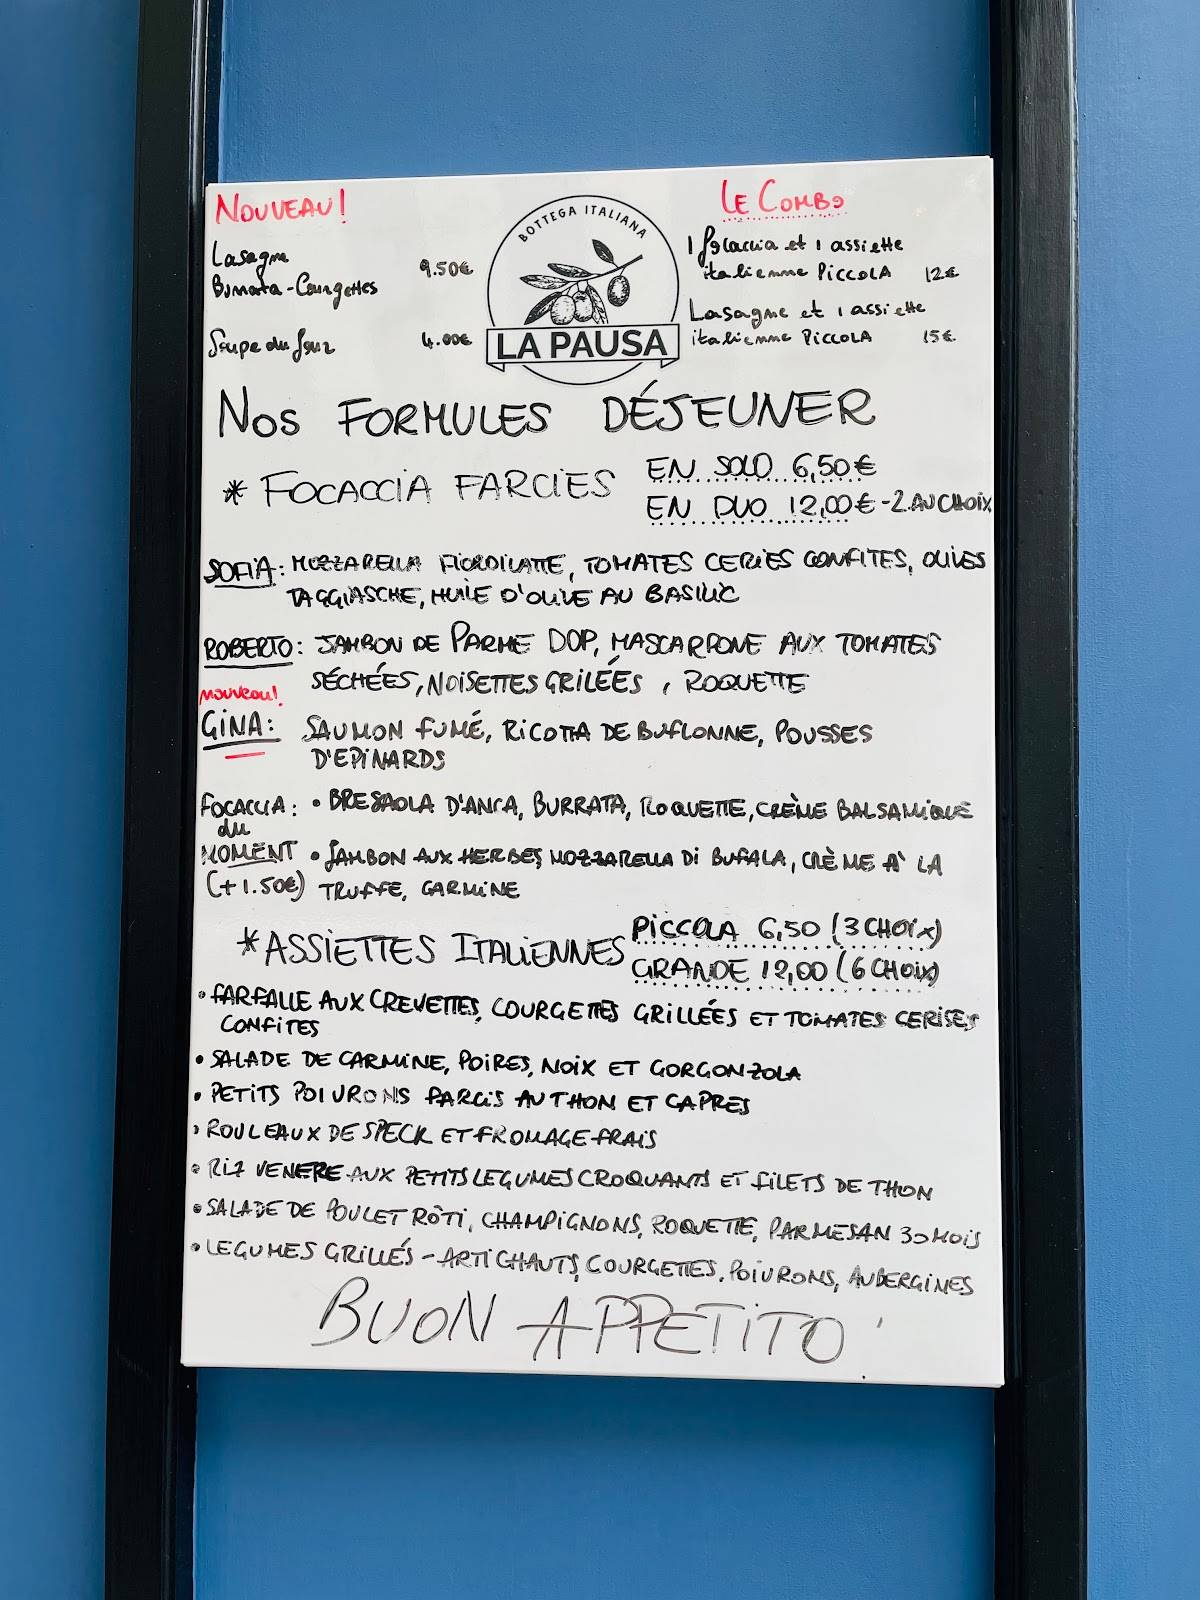 NOUVEAU!
Lasagne
Burrata-Courgettes 9.50€
Soupe du Jour 4.00€
BOTTEGA ITALIANA
LA PAUSA
LE COMBO
1 focaccia et 1 assiette
italienne PICCOLA 12€
Lasagne et 1 assiette
italienne PICCOLA 15€
NOS FORMULES DÉJEUNER
* FOCACCIA FARCIES
EN SOLO 6,50€
EN DUO 12,00€ - 2 AU CHOIX
SOFIA: MOZZARELLA FIORDILATTE, TOMATES CERIES CONFITES, OLIVES
TAGGIASCHE, HUILE D'OLIVE AU BASILIC
ROBERTO: JAMBON DE PARME DOP, MASCARPONE AUX TOMATES
SÉCHÉES, NOISETTES GRILÉÉS, ROQUETTE
nouveau!
GINA: SAUMON FUMÉ, RICOTTA DE BUFLONNE, POUSSES
D'EPINARDS
FOCACCIA: • BRESAOLA D'ANCA, BURRATA, ROQUETTE, CRÈME BALSAMIQUE
du
MOMENT • JAMBON AUX HERBES, MOZZARELLA DI BUFALA, CRÈME A' LA
(+1.50€) TRUFFE, CARMINE
*ASSIETTES ITALIENNES
PICCOLA 6,50 (3 CHOIX)
GRANDE 12,00 (6 CHOIX)
• FARFALLE AUX CREVETTES, COURGETTES GRILLÉES ET TOMATES CERISES
CONFITES
• SALADE DE CARMINE, POIRES, NOIX ET GORGONZOLA
• PETITS POIVRONS FARCIS AU THON ET CAPRES
• ROULEAUX DE SPECK ET FROMAGE FRAIS
• RIZ VENERE AUX PETITS LEGUMES CROQUANTS ET FILETS DE THON
• SALADE DE POULET RÔTI, CHAMPIGNONS, ROQUETTE, PARMESAN 30 MOIS
• LEGUMES GRILLÉS - ARTICHAUTS, COURGETTES, POIVRONS, AUBERGINES
BUON APPETITO